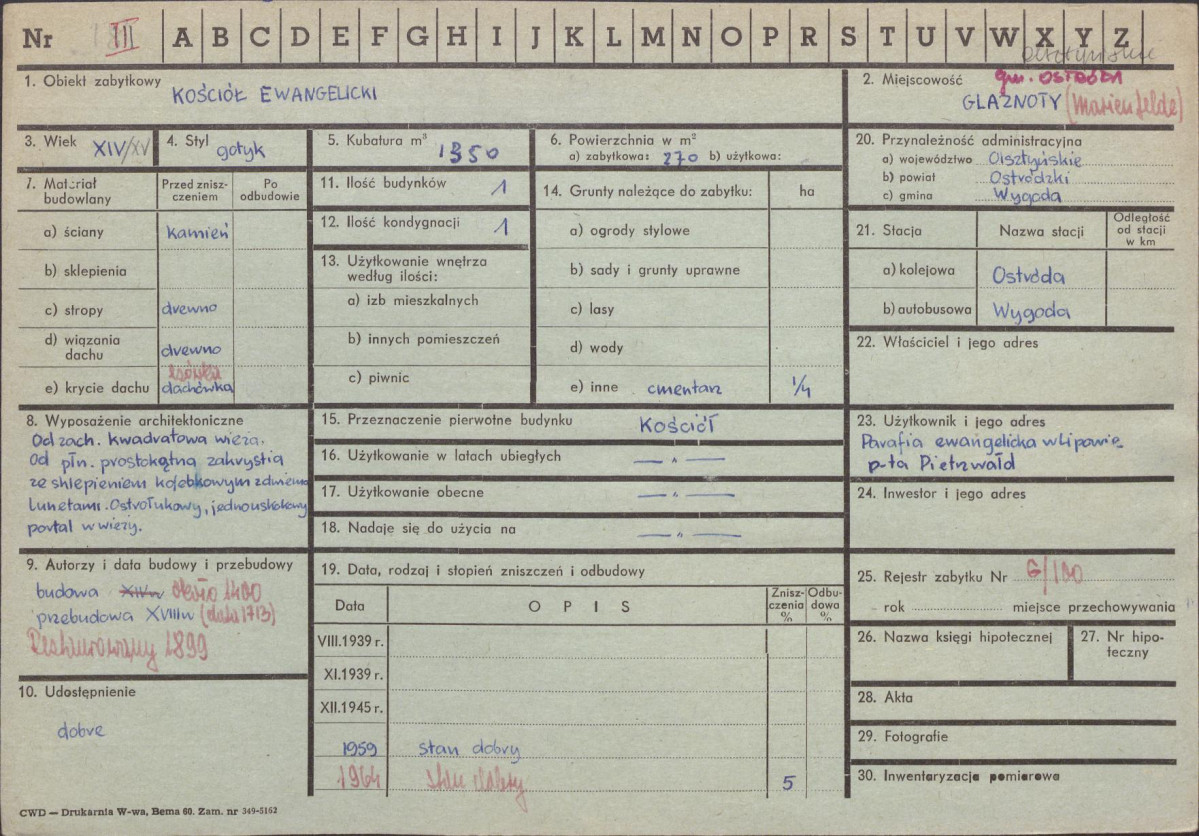 Nr III A B C D E F G H I J K L M N O P R S T U V W X Y Z
Olsztyńskie
1. Obiekt zabytkowy
KOŚCIÓŁ EWANGELICKI
2. Miejscowość gm. OSTRÓDA
GLAZNOTY (Marienfelde)
3. Wiek XIV/XV
4. Styl gotyk
5. Kubatura m³ 1350
6. Powierzchnia w m²
a) zabytkowa: 270 b) użytkowa:
20. Przynależność administracyjna
a) województwo Olsztyńskie
b) powiat Ostródzki
c) gmina Wygoda
7. Materiał budowlany
Przed zniszczeniem
Po odbudowie
a) ściany kamień
b) sklepienia
c) stropy drewno
d) wiązania dachu drewno
e) krycie dachu dachówka
11. Ilość budynków 1
12. Ilość kondygnacji 1
13. Użytkowanie wnętrza
według ilości:
a) izb mieszkalnych
b) innych pomieszczeń
c) piwnic
14. Grunty należące do zabytku: ha
a) ogrody stylowe
b) sady i grunty uprawne
c) lasy
d) wody
e) inne cmentarz 1/4
21. Stacja Nazwa stacji Odległość od stacji w km
a) kolejowa Ostróda
b) autobusowa Wygoda
22. Właściciel i jego adres
8. Wyposażenie architektoniczne
Od zach. kwadratowa wieża.
Od płn. prostokątna zakrystia
ze sklepieniem kolebkowym z dwiema
lunetami. Ostrołukowy, jednouskokowy
portal w wieży.
15. Przeznaczenie pierwotne budynku KOŚCIÓŁ
16. Użytkowanie w latach ubiegłych — „ —
17. Użytkowanie obecne — „ —
18. Nadaje się do użycia na — „ —
23. Użytkownik i jego adres
Parafia ewangelicka w Lipowie
p-ta Pietrzwałd
24. Inwestor i jego adres
9. Autorzy i data budowy i przebudowy
budowa XIVw około 1400
przebudowa XVIIIw (data 1713)
Restaurowany 1899
10. Udostępnienie
dobre
19. Data, rodzaj i stopień zniszczeń i odbudowy
Data OPIS Zniszczenia % Odbudowa %
VIII.1939 r.
XI.1939 r.
XII.1945 r.
1959 stan dobry
1964 stan dobry 5
25. Rejestr zabytku Nr G/100
rok miejsce przechowywania
26. Nazwa księgi hipotecznej
27. Nr hipoteczny
28. Akta
29. Fotografie
30. Inwentaryzacja pomiarowa
CWD — Drukarnia W-wa, Bema 60. Zam. nr 349-5162